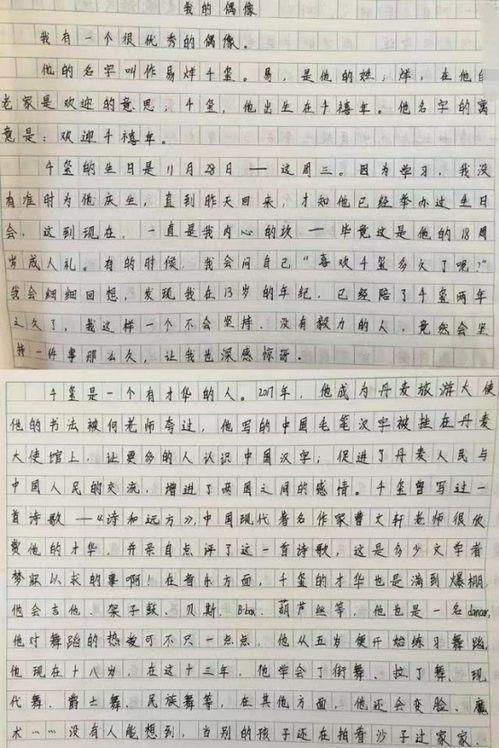 我的偶像
我有一个很优秀的偶像。
他的名字叫作易烊千玺。易，是他的姓；烊，在他的
老家是欢迎的意思；千玺，他出生在千禧年。他名字的寓
意是：欢迎千禧年。
千玺的生日是11月28日——这周三。因为学习，我没
有准时为他庆生，直到昨天回来，才知他已经举办过生日
会，这到现在，一直是我内心的坎——毕竟这是他的18周
岁成人礼。有的时候，我会问自己“喜欢千玺多久了呢？”
我会细细回想，发现我在13岁的年纪，已经陪了千玺两年
之久了，我这样一个不会坚持、没有毅力的人，竟然会坚
持一件事那么久，让我也深感惊讶。
千玺是一个有才华的人。2017年，他成为丹麦旅游大使
他的书法被何老师夸过，他写的中国毛笔汉字被挂在丹麦
大使馆上，让更多的人认识中国汉字；促进了丹麦人民与
中国人民的交流，增进了两国之间的感情。千玺曾写过一
首诗歌——《诗和远方》，中国现代著名作家曹文轩老师很欣
赏他的才华，并亲自点评了这一首诗歌，这是多少文学者
梦寐以求的事啊！在音乐方面，千玺的才华也是满到爆棚，
他会吉他、架子鼓、贝斯、B-box、葫芦丝等，他也是一名dancer，
他对舞蹈的热爱可不只一点点，他从五岁便开始练习舞蹈
他现在十八岁，在这十三年，他学会了街舞、拉丁舞、现
代舞、爵士舞、民族舞等，在其他方面，他还会变脸、魔
术……没有人能想到，当别的孩子还在拍着沙子过家家